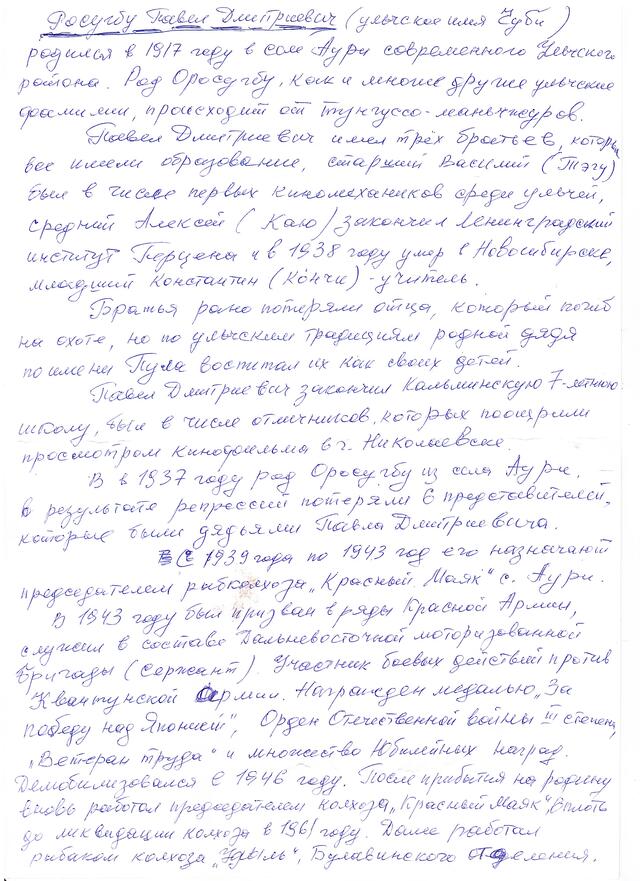 Росугбу Павел Дмитриевич (ульчское имя Чуби)
родился в 1917 году в селе Аури современного Ульчского
района. Род Оросугбу, как и многие другие ульчские
фамилии, происходит от тунгуссо-маньчжуров.
Павел Дмитриевич имел трёх братьев, которы
все имели образование, старший Василий (Тэгу)
был в числе первых киномехаников среди ульчей,
средний Алексей (Каю) закончил Ленинградский
институт Герцена и в 1938 году умер в Новосибирске,
младший Константин (Кончи) - учитель.
Братья рано потеряли отца, который погиб
на охоте, но по ульчским традициям родной дядя
по имени Пула воспитал их как своих детей.
Павел Дмитриевич закончил Кальминскую 7-летнюю
школу, был в числе отличников, которых поощрили
просмотром кинофильма в г. Николаевске.
В в 1937 году род Оросугбу из села Аури,
в результате репрессий потеряли 6 представителей,
которые были дядьями Павла Дмитриевича.
С 1939 года по 1943 год его назначают
председателем рыбколхоза „Красный Маяк" с. Аури.
В 1943 году был призван в ряды Красной Армии,
служил в составе Дальневосточной моторизованной
бригады (сержант). Участник боевых действий против
Квантунской Армии. Награжден медалью „За
победу над Японией", Орден Отечественной войны III степени,
„Ветеран труда" и множество Юбилейных наград.
Демобилизовался в 1946 году. После прибытия на родину
вновь работал председателем колхоза „Красный Маяк", вплоть
до ликвидации колхоза в 1961 году. Далее работал
рыбаком колхоза „Удыль", Булавинского отделения.